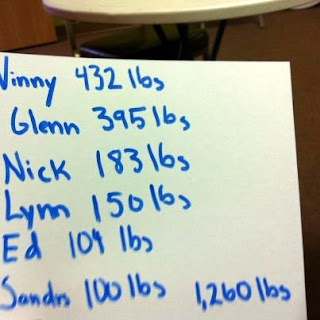 Vinny 432 lbs
Glenn 395 lbs
Nick 183 lbs
Lynn 150 lbs
Ed 104 lbs
100 lbs 1,260 lbs